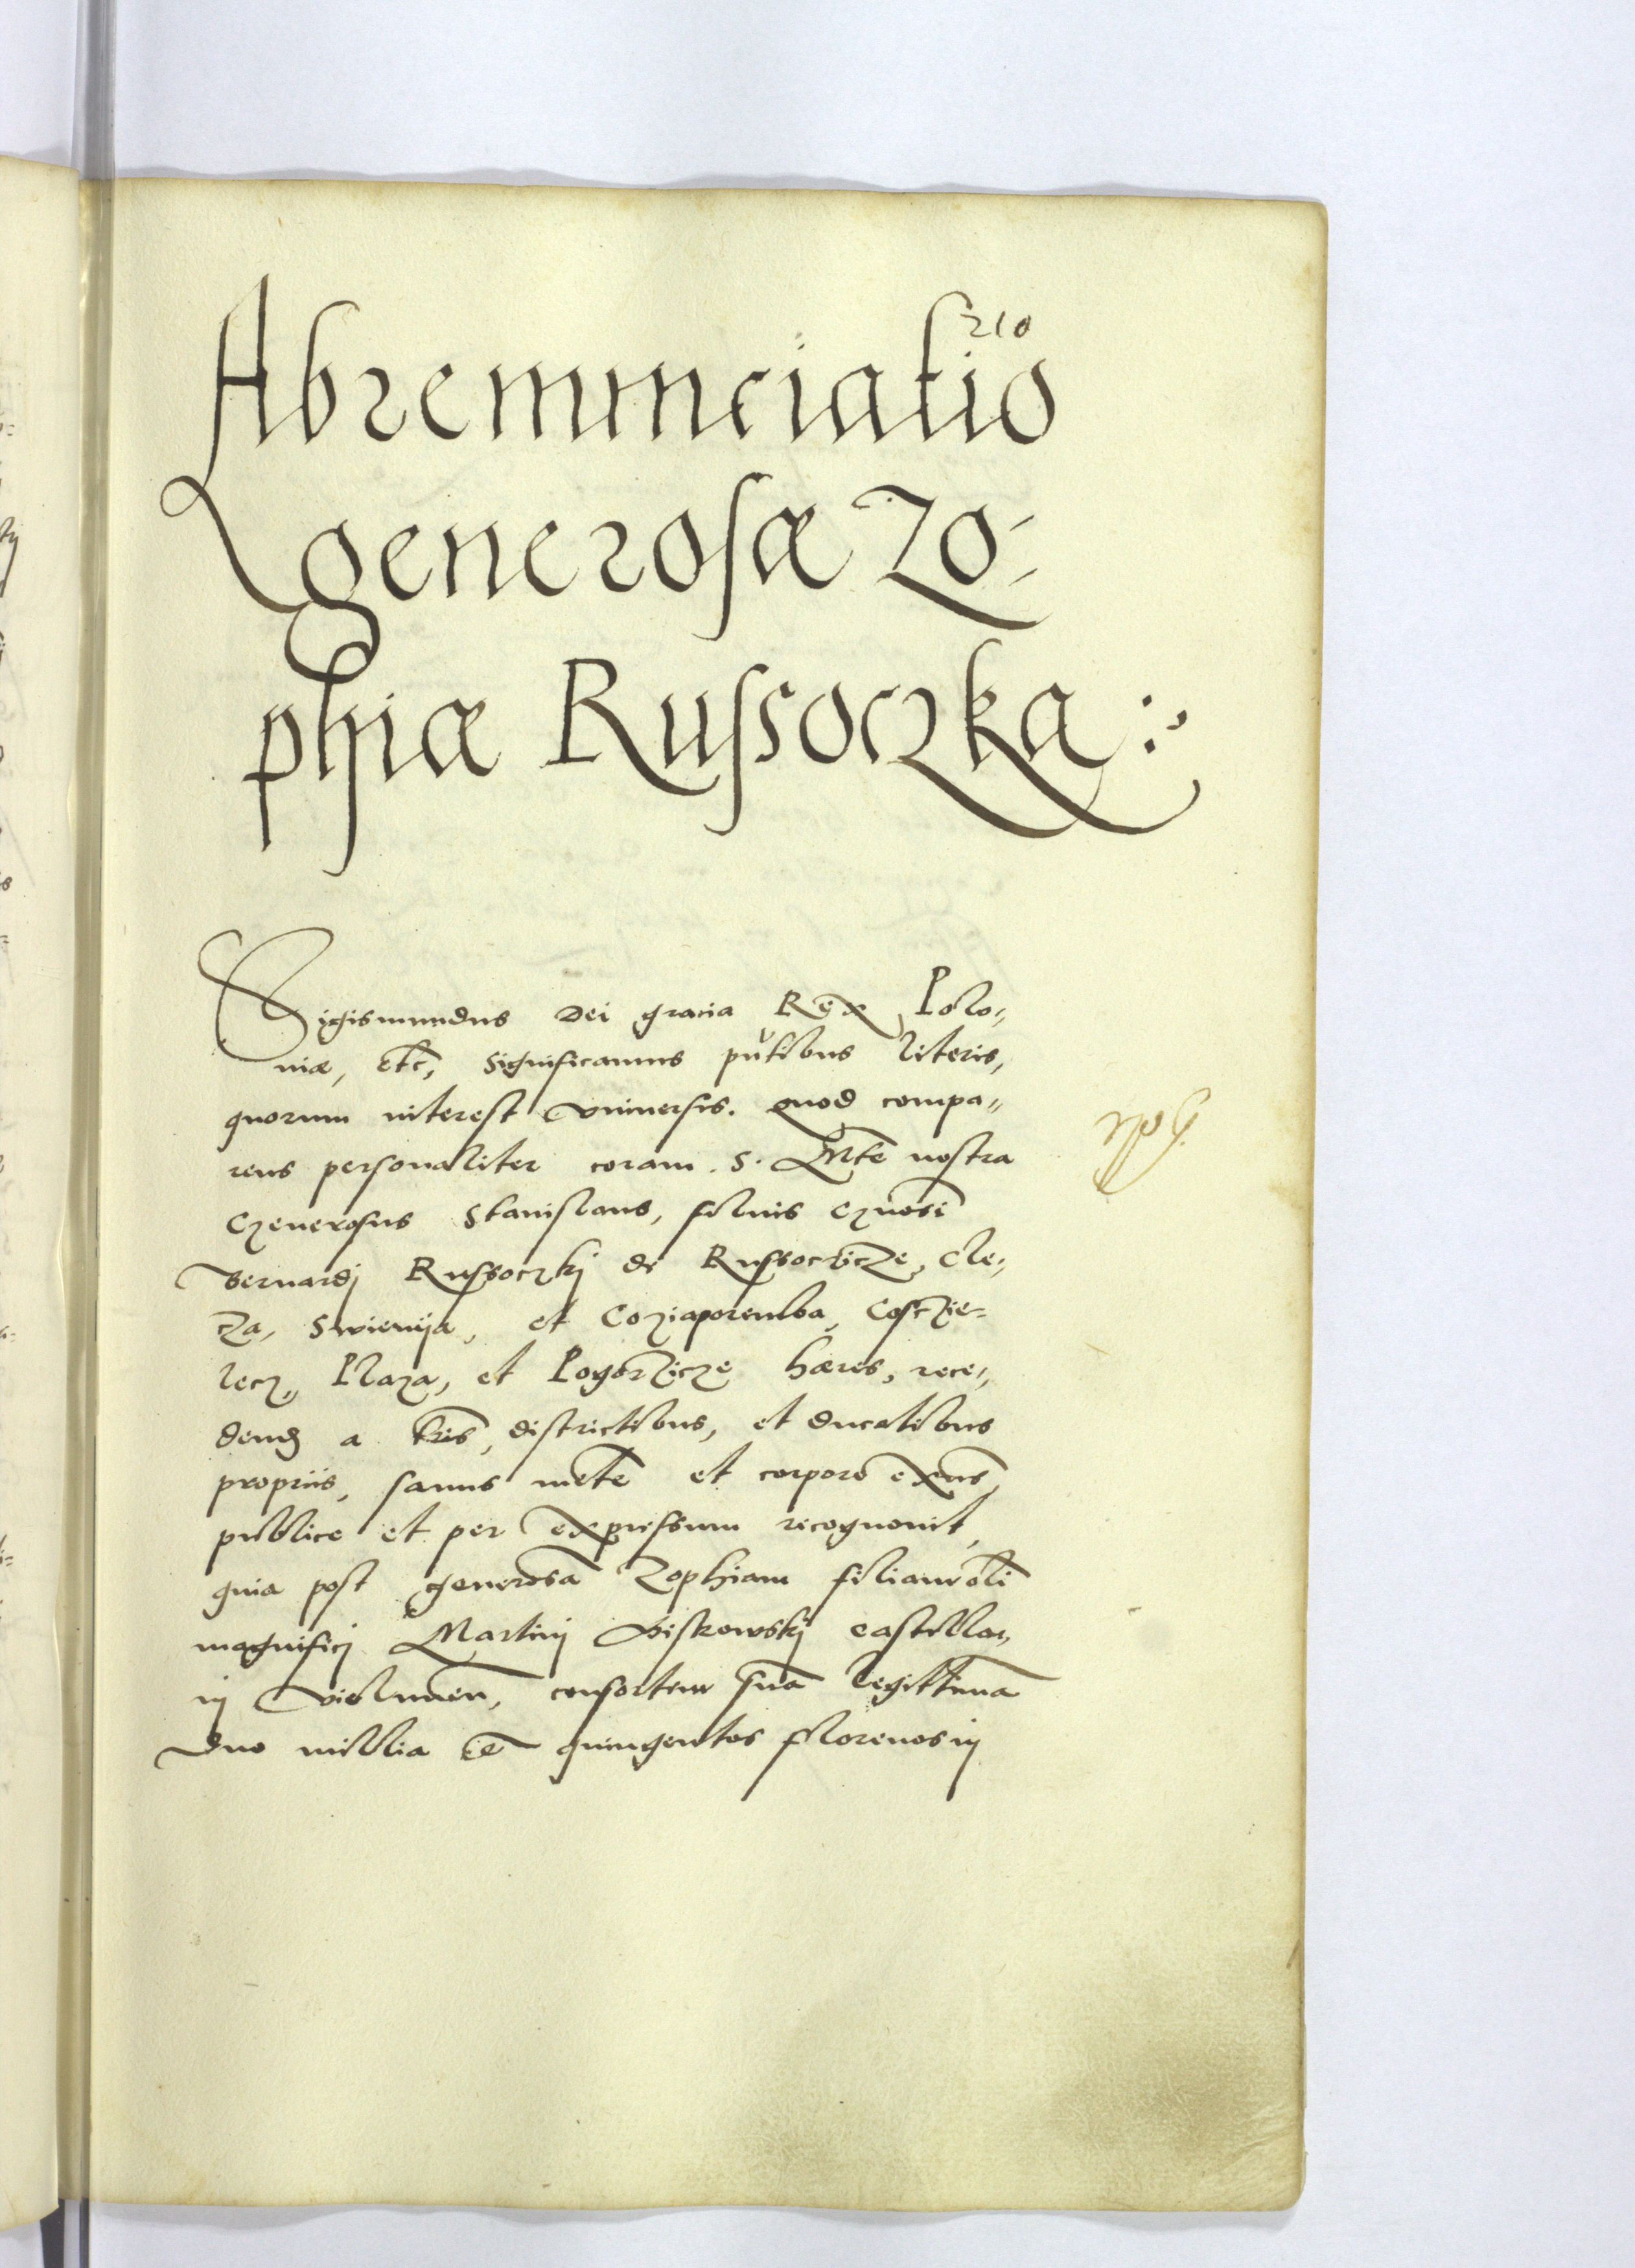 210
Abrenunciatio
generosæ Zo-
phiæ Russoczka :,
Sigismundus Dei gracia Rex Polo„
niæ, etc, Significamus pñtibus literis,
quorum interest Vniuersis. Quod compa„
rens personaliter coram S. Mte nostra
Generosus Stanislaus, filius Gñosi
Bernardj Russoczkj de Russoczicze, Cle„
cza, Swienija, et Coziaporemba, Costzie-
lecz, Plaza, et Pogorzicze hæres, rece„
dendo a tris, districtibus, et ducatibus
proprijs, sanus mēte et corpore exñs,
publice et per expressum recognouit,
quia post generosā Zophiam filiam oli
magnificj Martinj castella„
nj Vielunen, consortem suā legittimā
duo millia et quingentos florenos in